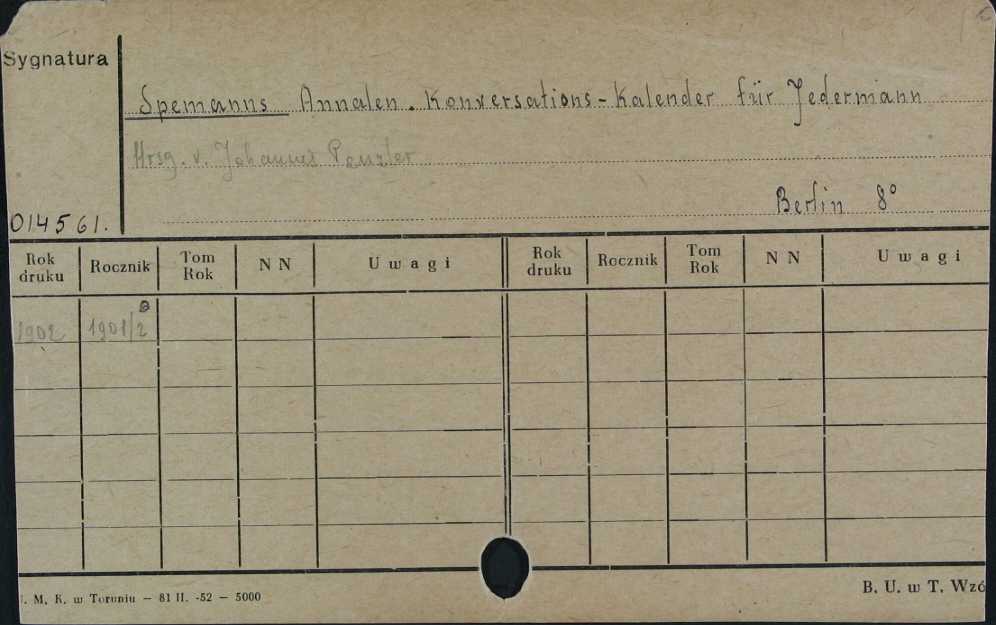 Sygnatura
Spemanns Annalen. Konversations-Kalender für Jedermann
Hrsg. v. Johannes Penzler
Berlin 8°
014561.
Rok druku Rocznik Tom Rok N N Uwagi Rok druku Rocznik Tom Rok N N Uwagi
1902 1901/2
. M. K. w Toruniu — 81 II. -52 — 5000
B. U. w T. Wzó